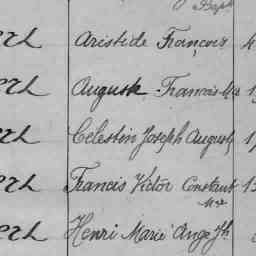 Bapte
erh Aristide François 4
erh Auguste Francis Mie 1
erh Celestin Joseph Auguste 1
erh Francis Victor Constant 1
Mie
erh Henri Marie Ange Jh